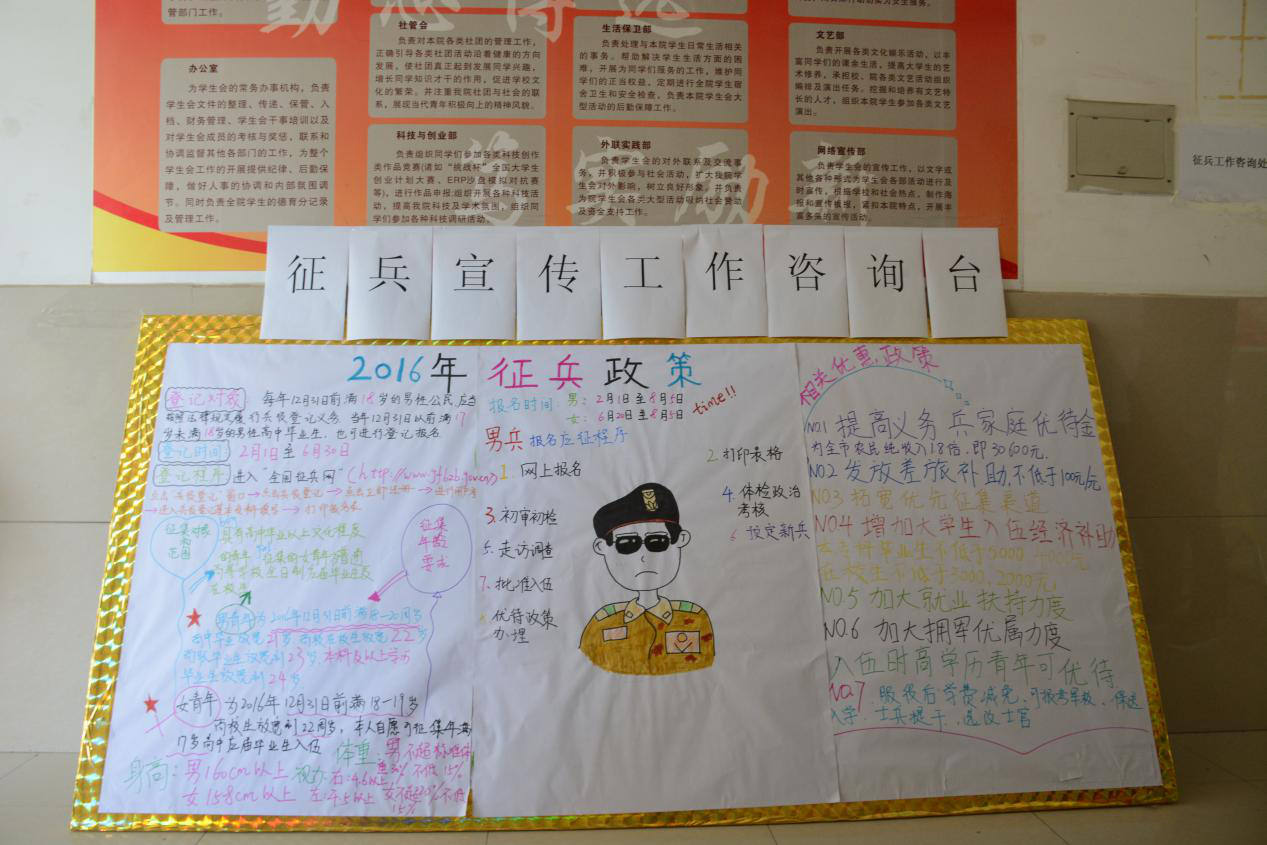 勤
管部门工作。
办公室
为学生会的常务办事机构，负责
学生会文件的整理、传递、保管、入
档、财务管理、学生会干事培训以及
对学生会成员的考核与奖惩，联系和
协调监督其他各部门的工作，为整个
学生会工作的开展提供纪律、后勤保
障，做好人事的协调和内部氛围调
节。同时负责全院学生的德育分记录
及管理工作。
社管会
负责对本院各类社团的管理工作，
正确引导各类社团活动沿着健康的方向
发展，使社团真正起到发展同学兴趣，
增长同学知识才干的作用，促进学校文
化的繁荣。并注重我院社团与社会的联
系，展现当代青年积极向上的精神风貌。
科技与创业部
负责组织同学们参加各类科技创作
类作品竞赛(请如“挑战杯”全国大学生
创业计划大赛、ERP沙盘模拟对抗赛
等)，进行作品申报;组织开展各种科技活
动，提高我院科技及学术氛围，组织同
学们参加各种科技调研活动。
生活保卫部
负责处理与本院学生日常生活相关
的事务。帮助解决学生生活方面的困
难，开展为同学们服务的工作，维护同
学们的正当权益，定期进行全院学生宿
舍卫生和安全检查，负责本院学生会大
型活动的后勤保障工作。
外联实践部
负责学生会的对外联系及交流事
务，并积极参与社会活动，扩大我院学
生会对外影响，树立良好形象，并负责
为院学生会各类大型活动吸纳社会赞助
及资金支持工作。
文艺部
负责开展各类文化娱乐活动，以丰
富同学们的课余生活，提高大学生的艺
术修养，承担校、院各类文艺活动组织
编排及演出任务。挖掘和培养有文艺特
长的人才，组织本院学生参加各类文艺
演出。
网络宣传部
负责学生会的宣传工作，以文字或
其他各种形式为学生会各部活动进行及
时宣传，根据学校和社会热点，制作海
报和宣传板报，紧扣本院特点，开展丰
富多采的宣传活动。
征兵工作咨询处
征兵宣传工作咨询台
2016年 征兵政策
登记对象 每年12月31日前满18岁的男性公民,应当
按照法律规定履行兵役登记义务,当年12月31日以前满17
岁未满18岁的男性高中毕业生,也可进行登记报名
登记时间: 2月1日至6月30日
登记程序 进入“全国征兵网”
征集对象
和
范围
具有高中毕业以上文化程度
的青年,征集的女青年为普通
高等学校全日制应届毕业生及
在校生
征集
年龄
要求
男青年为2016年12月31日前满
高中毕业放宽21岁,高校在校生放宽22岁
毕业生放宽到23岁,本科及以上学历
毕业生放宽到24岁
女青年 为2016年12月31日前满18-19岁
高校生放宽到22周岁, 本人自愿可征集年满
17岁高中应届毕业生入伍
身高: 男160cm以上
女158cm以上
视力: 右:4.6以上
左:4.5以上
体重: 男
15%
报名时间: 男: 2月1日至8月5日
女: 6月20日至8月5日
time!!
男兵 报名应征程序
1. 网上报名
2. 打印表格
3. 初审初检
4. 体检政治
考核
5. 走访调查
6. 设定新兵
7. 批准入伍
8. 优待政策
办理
相关优惠政策
NO.1 提高义务兵家庭优待金
为全市农民纯收入1.8倍,即30600元.
NO.2 发放差旅补助,不低于100元/
NO.3 拓宽优先征集渠道
NO.4 增加大学生入伍经济补助
本专科毕业生不低于5000,4000元
在校生不低于3000,2000元.
NO.5 加大就业扶持力度
NO.6 加大拥军优属力度
入伍时高学历青年可优待
No.7 服役后学费减免,可报考军校,保送
入学,士兵提干,选改士官